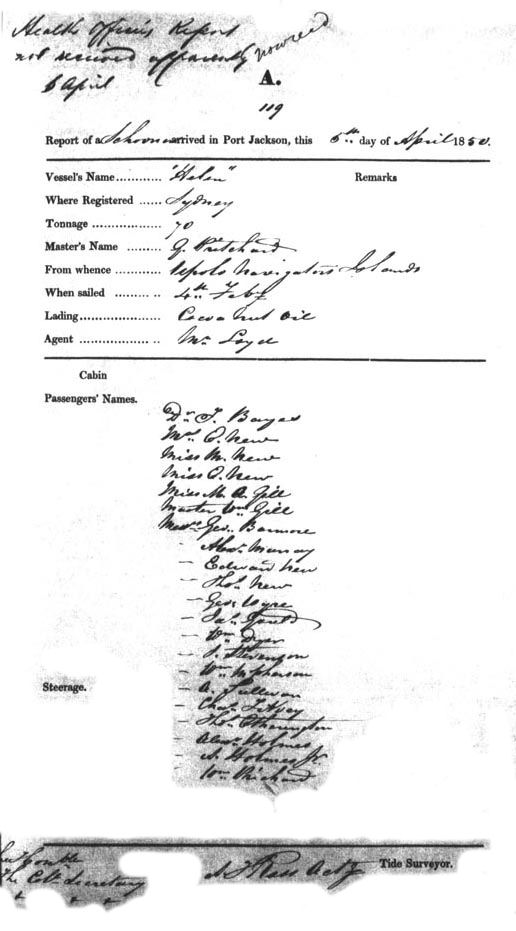 Health Officer's Report
not received apparently now recd
6 April
A.
119
Report of a Schooner arrived in Port Jackson, this 5th day of April 1850.
Vessel's Name ............ "Helen" Remarks
Where Registered ...... Sydney
Tonnage .................. 70
Master's Name ......... G. Pritchard
From whence ............ Upolo Navigators Islands
When sailed ......... .. 4th Feby
Lading ..................... Cocoa Nut Oil
Agent ............... .. Mr Loyd
Cabin
Passengers' Names.
Dr T.
Mrs C. New
Miss M. New
Miss C. New
Miss M. A. Gill
Master Wm Gill
Messrs Geo. Banmore
– Alexr Murray
– Edward New
– Thos New
– Geo. Wyre
– Jas Gould
– Wm Dyer
– J. Stevenson
– Wm McPherson
Steerage. – A. Fullerton
– Chas
– Thos Etherington
– Alexr Holmes
– A. Holmes Jr
– Wm Prichard
The Col. Secretary
& & &
A Ross Actg Tide Surveyor.